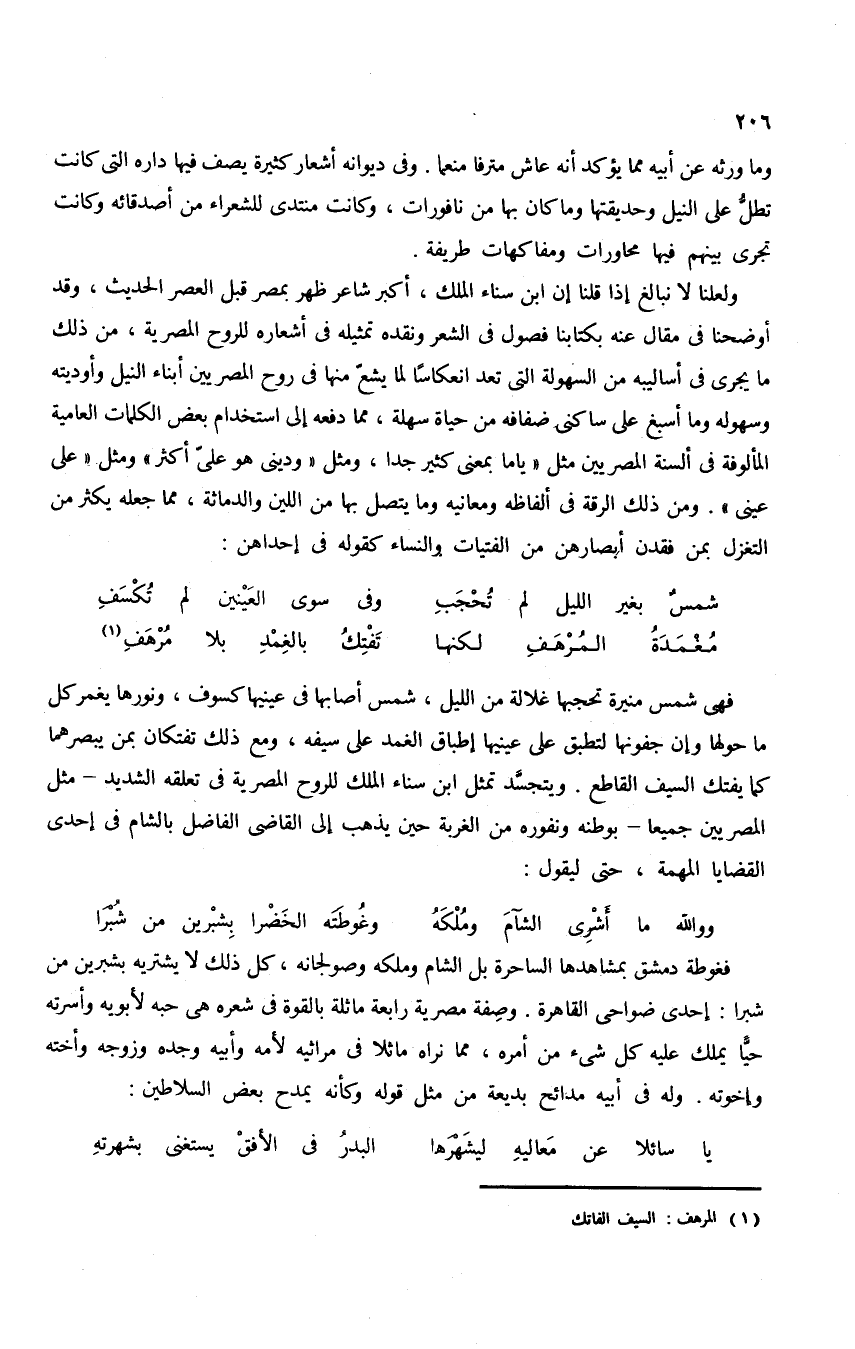 ٢٠٦
وما ورثه عن أبيه مما يؤكد أنه عاش مترفا منعما . وفى ديوانه أشعار كثيرة يصف فيها داره التى كانت
تطلُّ على النيل وحديقتها وماكان بها من نافورات ، وكانت منتدى للشعراء من أصدقائه وكانت
تجرى بينهم فيها محاورات ومفاكهات طريفة .
ولعلنا لا نبالغ إذا قلنا إن ابن سناء الملك ، أكبر شاعر ظهر بمصر قبل العصر الحديث ، وقد
أوضحنا فى مقال عنه بكتابنا فصول فى الشعر ونقده تمثيله فى أشعاره للروح المصرية ، من ذلك
ما يجرى فى أساليبه من السهولة التى تعد انعكاسًا لما يشعّ منها فى روح المصريين أبناء النيل وأوديته
وسهوله وما أسبغ على ساكنى ضفافه من حياة سهلة ، مما دفعه إلى استخدام بعض الكلمات العامية
المألوفة فى ألسنة المصريين مثل « ياما بمعنى كثير جدا ، ومثل « ودينى هو علىّ أكثر » ومثل « على
عينى » . ومن ذلك الرقة فى ألفاظه ومعانيه وما يتصل بها من اللين والدماثة ، مما جعله يكثر من
التغزل بمن فقدن أبصارهن من الفتيات والنساء كقوله فى إحداهن :
شمسٌ بغير الليل لم تُحْجَبِ وفى سوى العَيْنين لم تُكْسَفِ
مُغْمَدَةُ المُرْهَفِ لكنها تَفْتِكُ بالغِمْدِ بلا مُرْهَفِ(١)
فهى شمس منيرة تحجبها غلالة من الليل ، شمس أصابها فى عينيها كسوف ، ونورها يغمر كل
ما حولها وإن جفونها لتطبق على عينيها إطباق الغمد على سيفه ، ومع ذلك تفتكان بمن يبصرهما
كما يفتك السيف القاطع . ويتجسَّد تمثل ابن سناء الملك للروح المصرية فى تعلقه الشديد – مثل
المصريين جميعا – بوطنه ونفوره من الغربة حين يذهب إلى القاضى الفاضل بالشام فى إحدى
القضايا المهمة ، حتى ليقول :
ووالله ما أَشْرِى الشآمَ ومُلْكَهُ وغُوطتَه الخَضْرا بِشبْرين من شُبْرَا
فغوطة دمشق بمشاهدها الساحرة بل الشام وملكه وصولجانه ، كل ذلك لا يشتريه بشبرين من
شبرا : إحدى ضواحى القاهرة . وصِفة مصرية رابعة ماثلة بالقوة فى شعره هى حبه لأبويه وأسرته
حبًّا يملك عليه كل شىء من أمره ، مما نراه ماثلا فى مراثيه لأمه وأبيه وجده وزوجه وأخته
وإخوته . وله فى أبيه مدائح بديعة من مثل قوله وكأنه يمدح بعض السلاطين :
يا سائلا عن مَعاليهِ ليشَهْرَها البدرُ فى الأفقْ يستغنى بشهرتهِ
(١) المرهف : السيف الفاتك